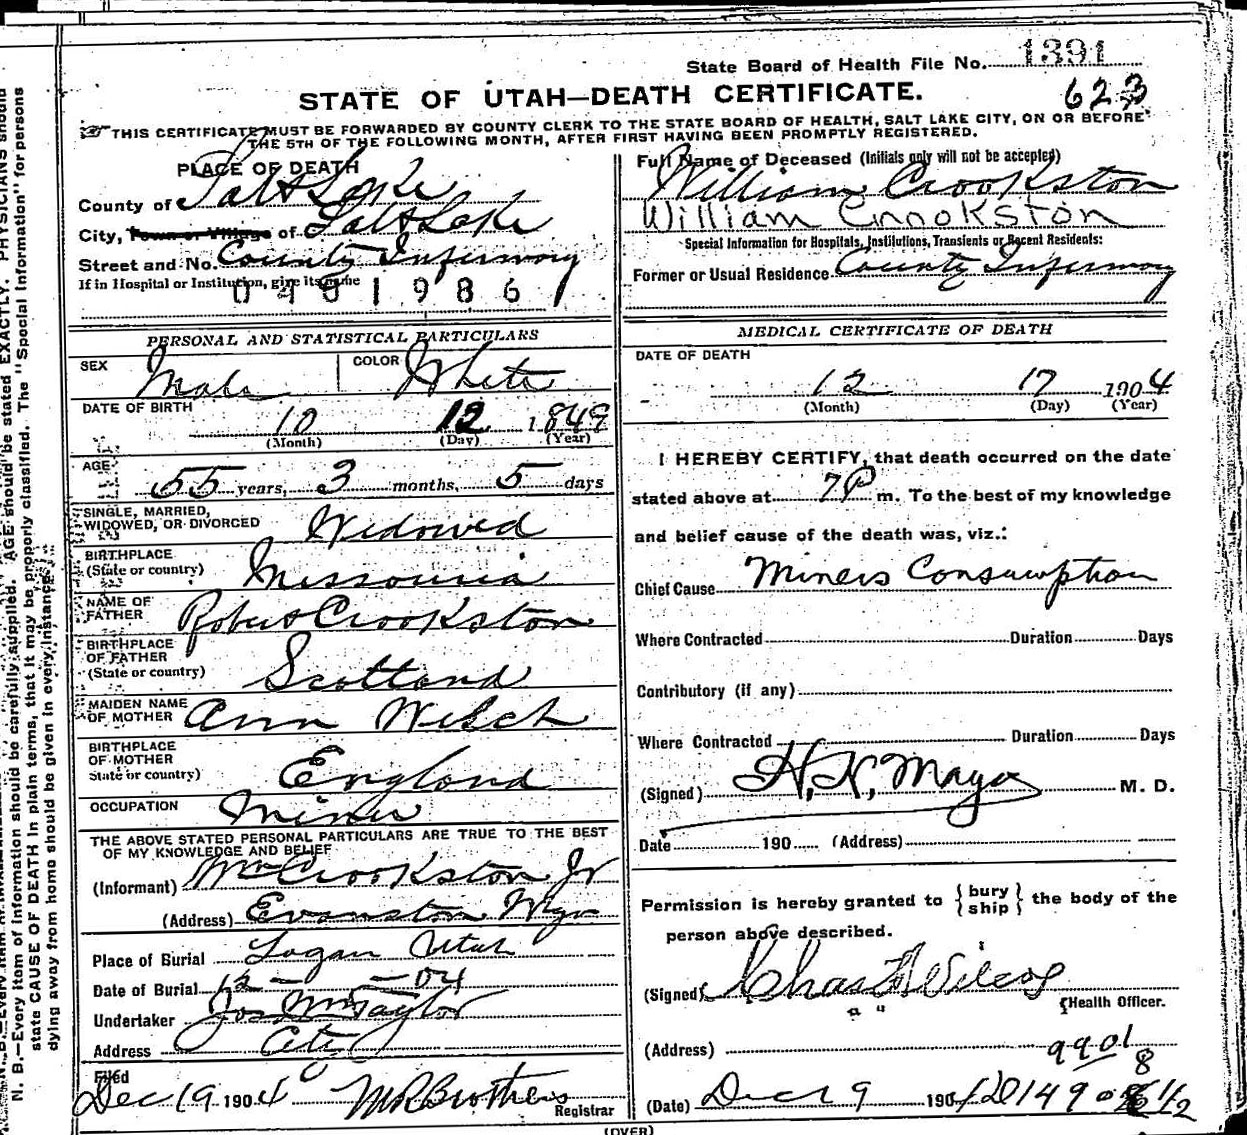 State Board of Health File No. 1391
623
STATE OF UTAH—DEATH CERTIFICATE.
THIS CERTIFICATE MUST BE FORWARDED BY COUNTY CLERK TO THE STATE BOARD OF HEALTH, SALT LAKE CITY, ON OR BEFORE
THE 5TH OF THE FOLLOWING MONTH, AFTER FIRST HAVING BEEN PROMPTLY REGISTERED.
PLACE OF DEATH
County of Salt Lake
City, Town or Village of Salt Lake
Street and No. County Infirmary
If in Hospital or Institution, give its name
0401986
PERSONAL AND STATISTICAL PARTICULARS
SEX Male COLOR White
DATE OF BIRTH 10 12 1849
(Month) (Day) (Year)
AGE 55 years, 3 months, 5 days
SINGLE, MARRIED,
WIDOWED, OR DIVORCED Widowed
BIRTHPLACE
(State or country) Missouria
NAME OF
FATHER Robert Crookston
BIRTHPLACE
OF FATHER
(State or country) Scotland
MAIDEN NAME
OF MOTHER Ann Welsch
BIRTHPLACE
OF MOTHER
State or country) England
OCCUPATION Miner
THE ABOVE STATED PERSONAL PARTICULARS ARE TRUE TO THE BEST
OF MY KNOWLEDGE AND BELIEF
(Informant) Wm Crookston Jr
(Address) Evanston Wyo
Place of Burial Logan Utah
Date of Burial 12 - - 04
Undertaker Jos Wm Taylor
Address City
Filed
Dec 19 1904 M R Brothers Registrar
Full Name of Deceased (Initials only will not be accepted)
William Crookston
William Crookston
Special Information for Hospitals, Institutions, Transients or Recent Residents:
Former or Usual Residence County Infirmary
MEDICAL CERTIFICATE OF DEATH
DATE OF DEATH
12 17 1904
(Month) (Day) (Year)
I HEREBY CERTIFY, that death occurred on the date
stated above at 7 P m. To the best of my knowledge
and belief cause of the death was, viz.:
Chief Cause Miners Consumption
Where Contracted Duration Days
Contributory (if any)
Where Contracted Duration Days
(Signed) H. N. Mayo M. D.
Date 190 (Address)
Permission is hereby granted to {bury ship} the body of the
person above described.
(Signed) Chas F Wilcox
Health Officer.
(Address)
9901
8
(Date) Dec 19 1904
(OVER)
N. B.—Every item of information should be carefully supplied. AGE should be stated EXACTLY. PHYSICIANS should
state CAUSE OF DEATH in plain terms, that it may be properly classified. The "Special Information" for persons
dying away from home should be given in every instance.